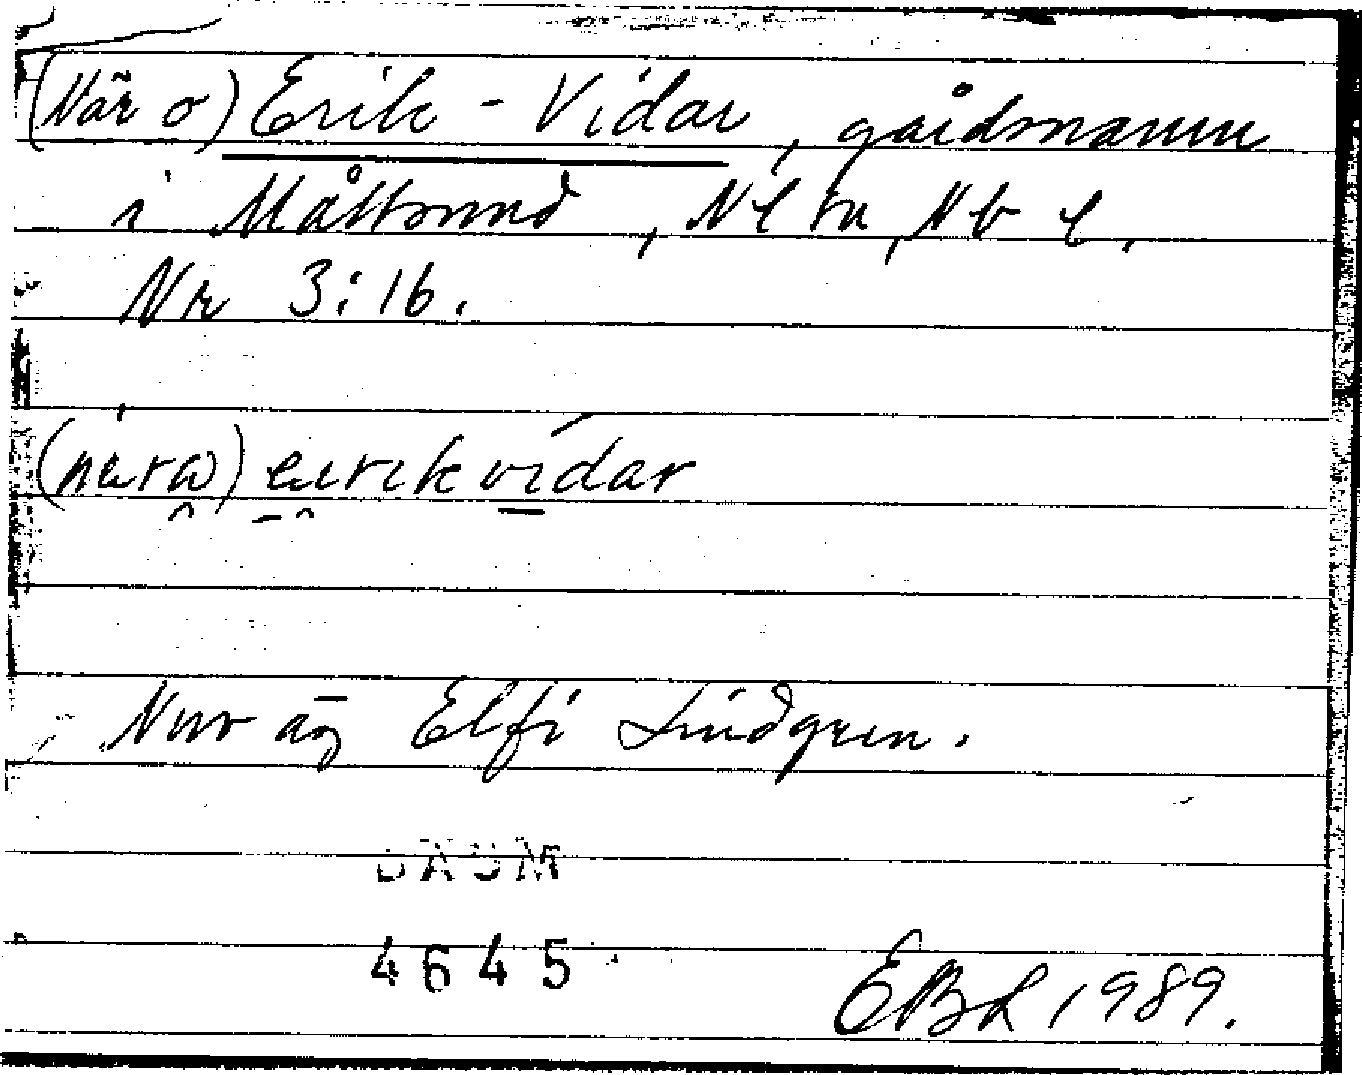 (När o) Erik-Vidar, gårdsmann
i Måttsund, Nl sn, Nb l.
Nr 3:16.
(närω) eerık vídar
Nuv äg Elfi Lindgren.
DAUM
4645
EBL 1989.